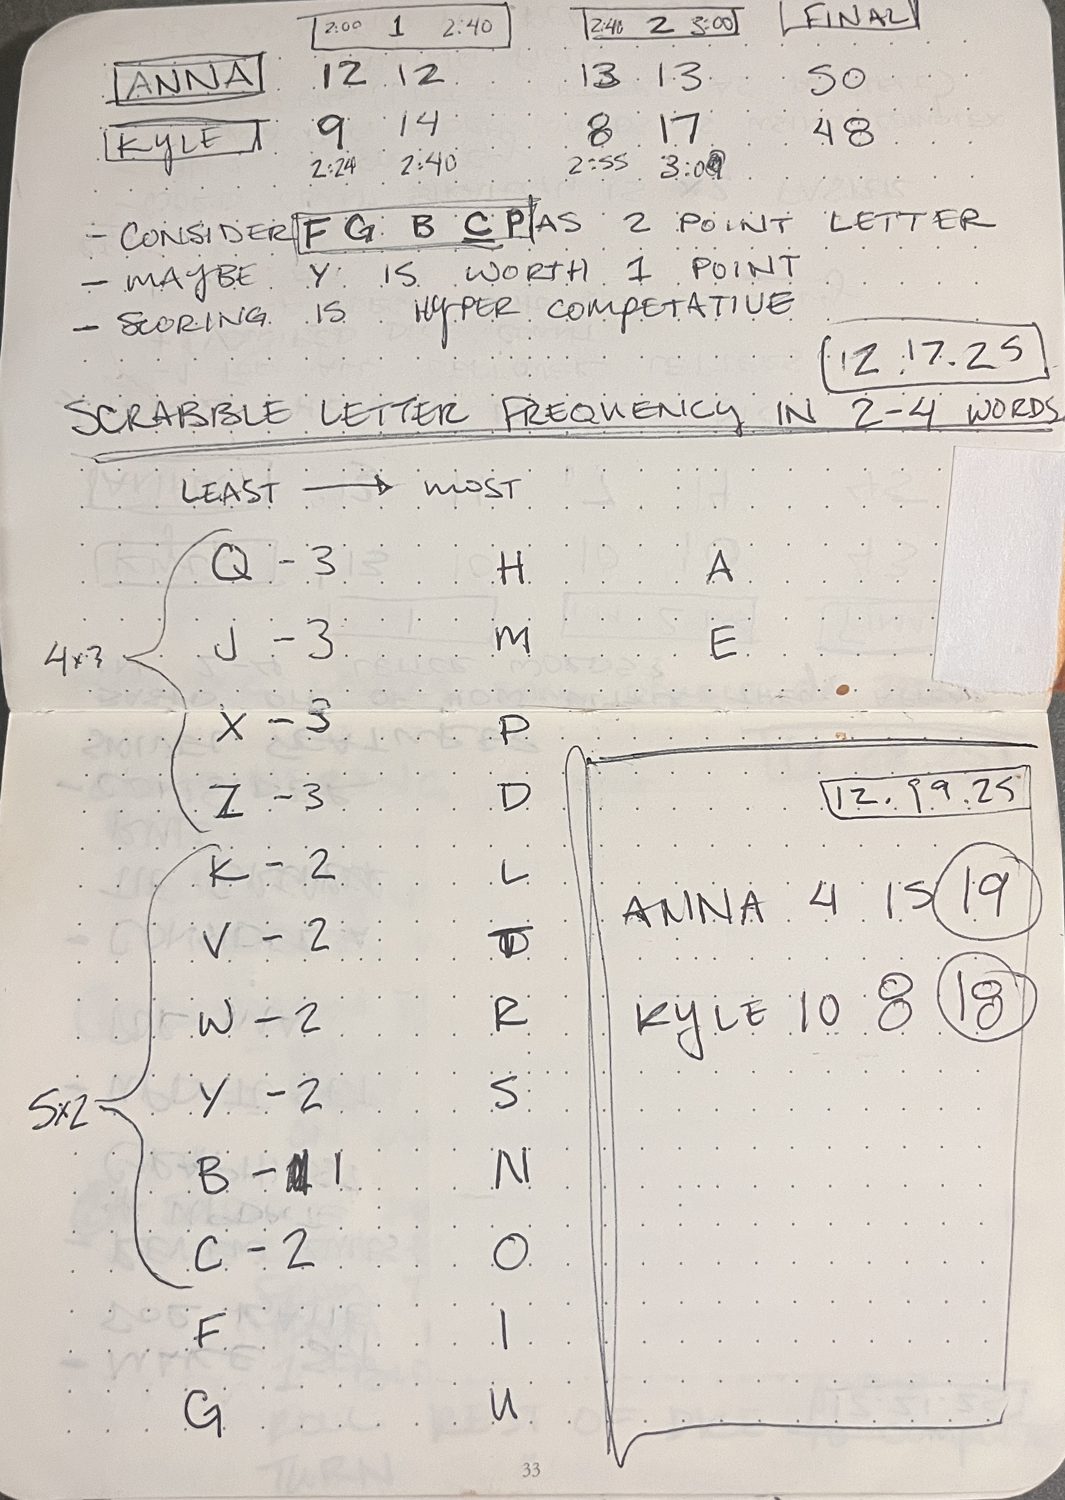 2:00 1 2:40 2:40 2 3:00 FINAL
ANNA 12 12 13 13 50
KYLE 9 14 8 17 48
2:24 2:40 2:55 3:09
- CONSIDER F G B C P AS 2 POINT LETTER
- MAYBE Y IS WORTH 1 POINT
- SCORING IS HYPER COMPETATIVE
12.17.25
SCRABBLE LETTER FREQUENCY IN 2-4 WORDS
LEAST → MOST
4x3
Q - 3
J - 3
X - 3
Z - 3
5x2
K - 2
V - 2
W - 2
Y - 2
B - 1
C - 2
F
G
H
M
P
D
L
T
R
S
N
O
I
U
A
E
12.19.25
ANNA 4 15 19
KYLE 10 8 18
33